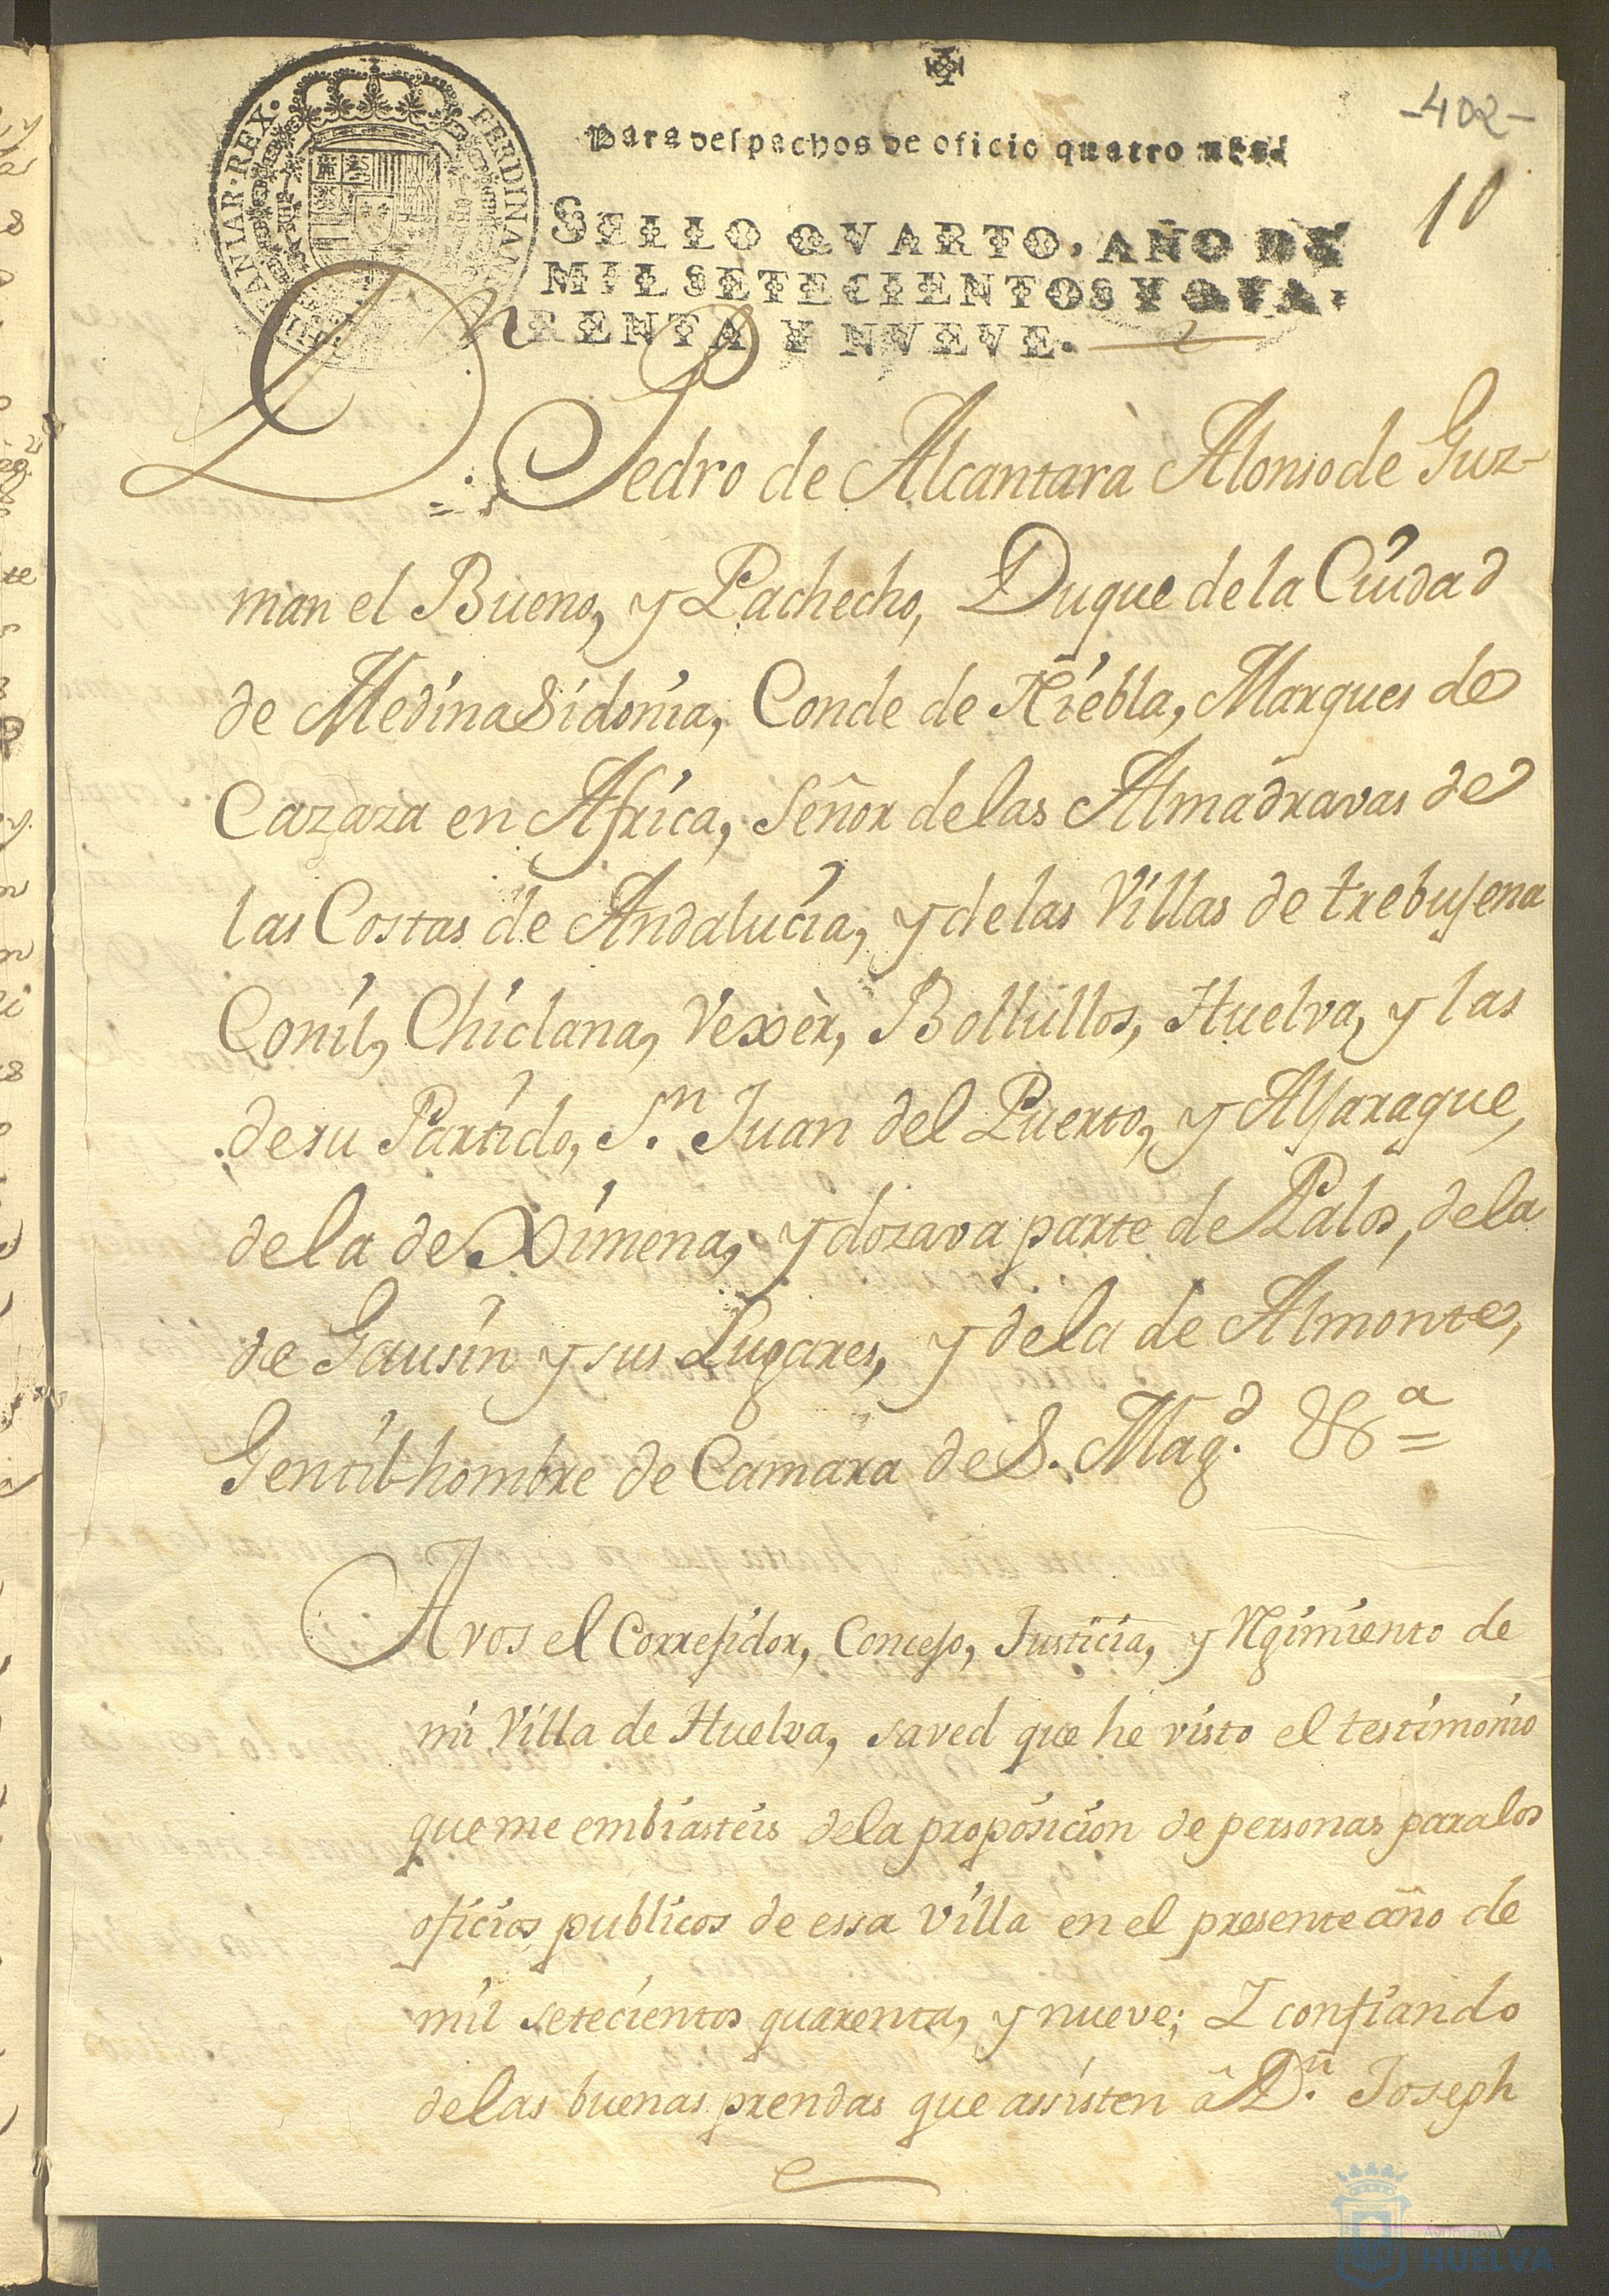 -402-
Para despachos de oficio quatro mrs.
10
SELLO QVARTO, AÑO DE
MIL SETECIENTOS Y QVA-
RENTA Y NVEVE.
FERDINAN
HISPANIAR·REX·
Dn. Pedro de Alcantarà Alonso de Guz-
man el Bueno, y Pachecho, Duque de la Ciudad
de Medina Sidonia, Conde de Niebla, Marques de
Cazaza en Africa, Señor de las Almadravas de
las Costas de Andalucia, y de las Villas de trebujena
Conil, Chiclana, Vexèr, Bollullos, Huelva, y las
de su Partido, Sn. Juan del Puerto, y Aljaraque,
de la de Ximena, y dozava parte de Palos, de la
de Gausin y sus Lugares, y de la de Almonte,
Gentil-hombre de Camara de S. Magd. &a
A vos el Correjidor, Concejo, Justicia, y Rgimiento de
mi Villa de Huelva, saved que he visto el testimonio
que me embiasteis de la proposicion de personas para los
oficios publicos de essa villa en el presente año de
mil setecientos quarenta, y nueve; I confiando
de las buenas prendas que assisten â Dn. Joseph
HUELVA